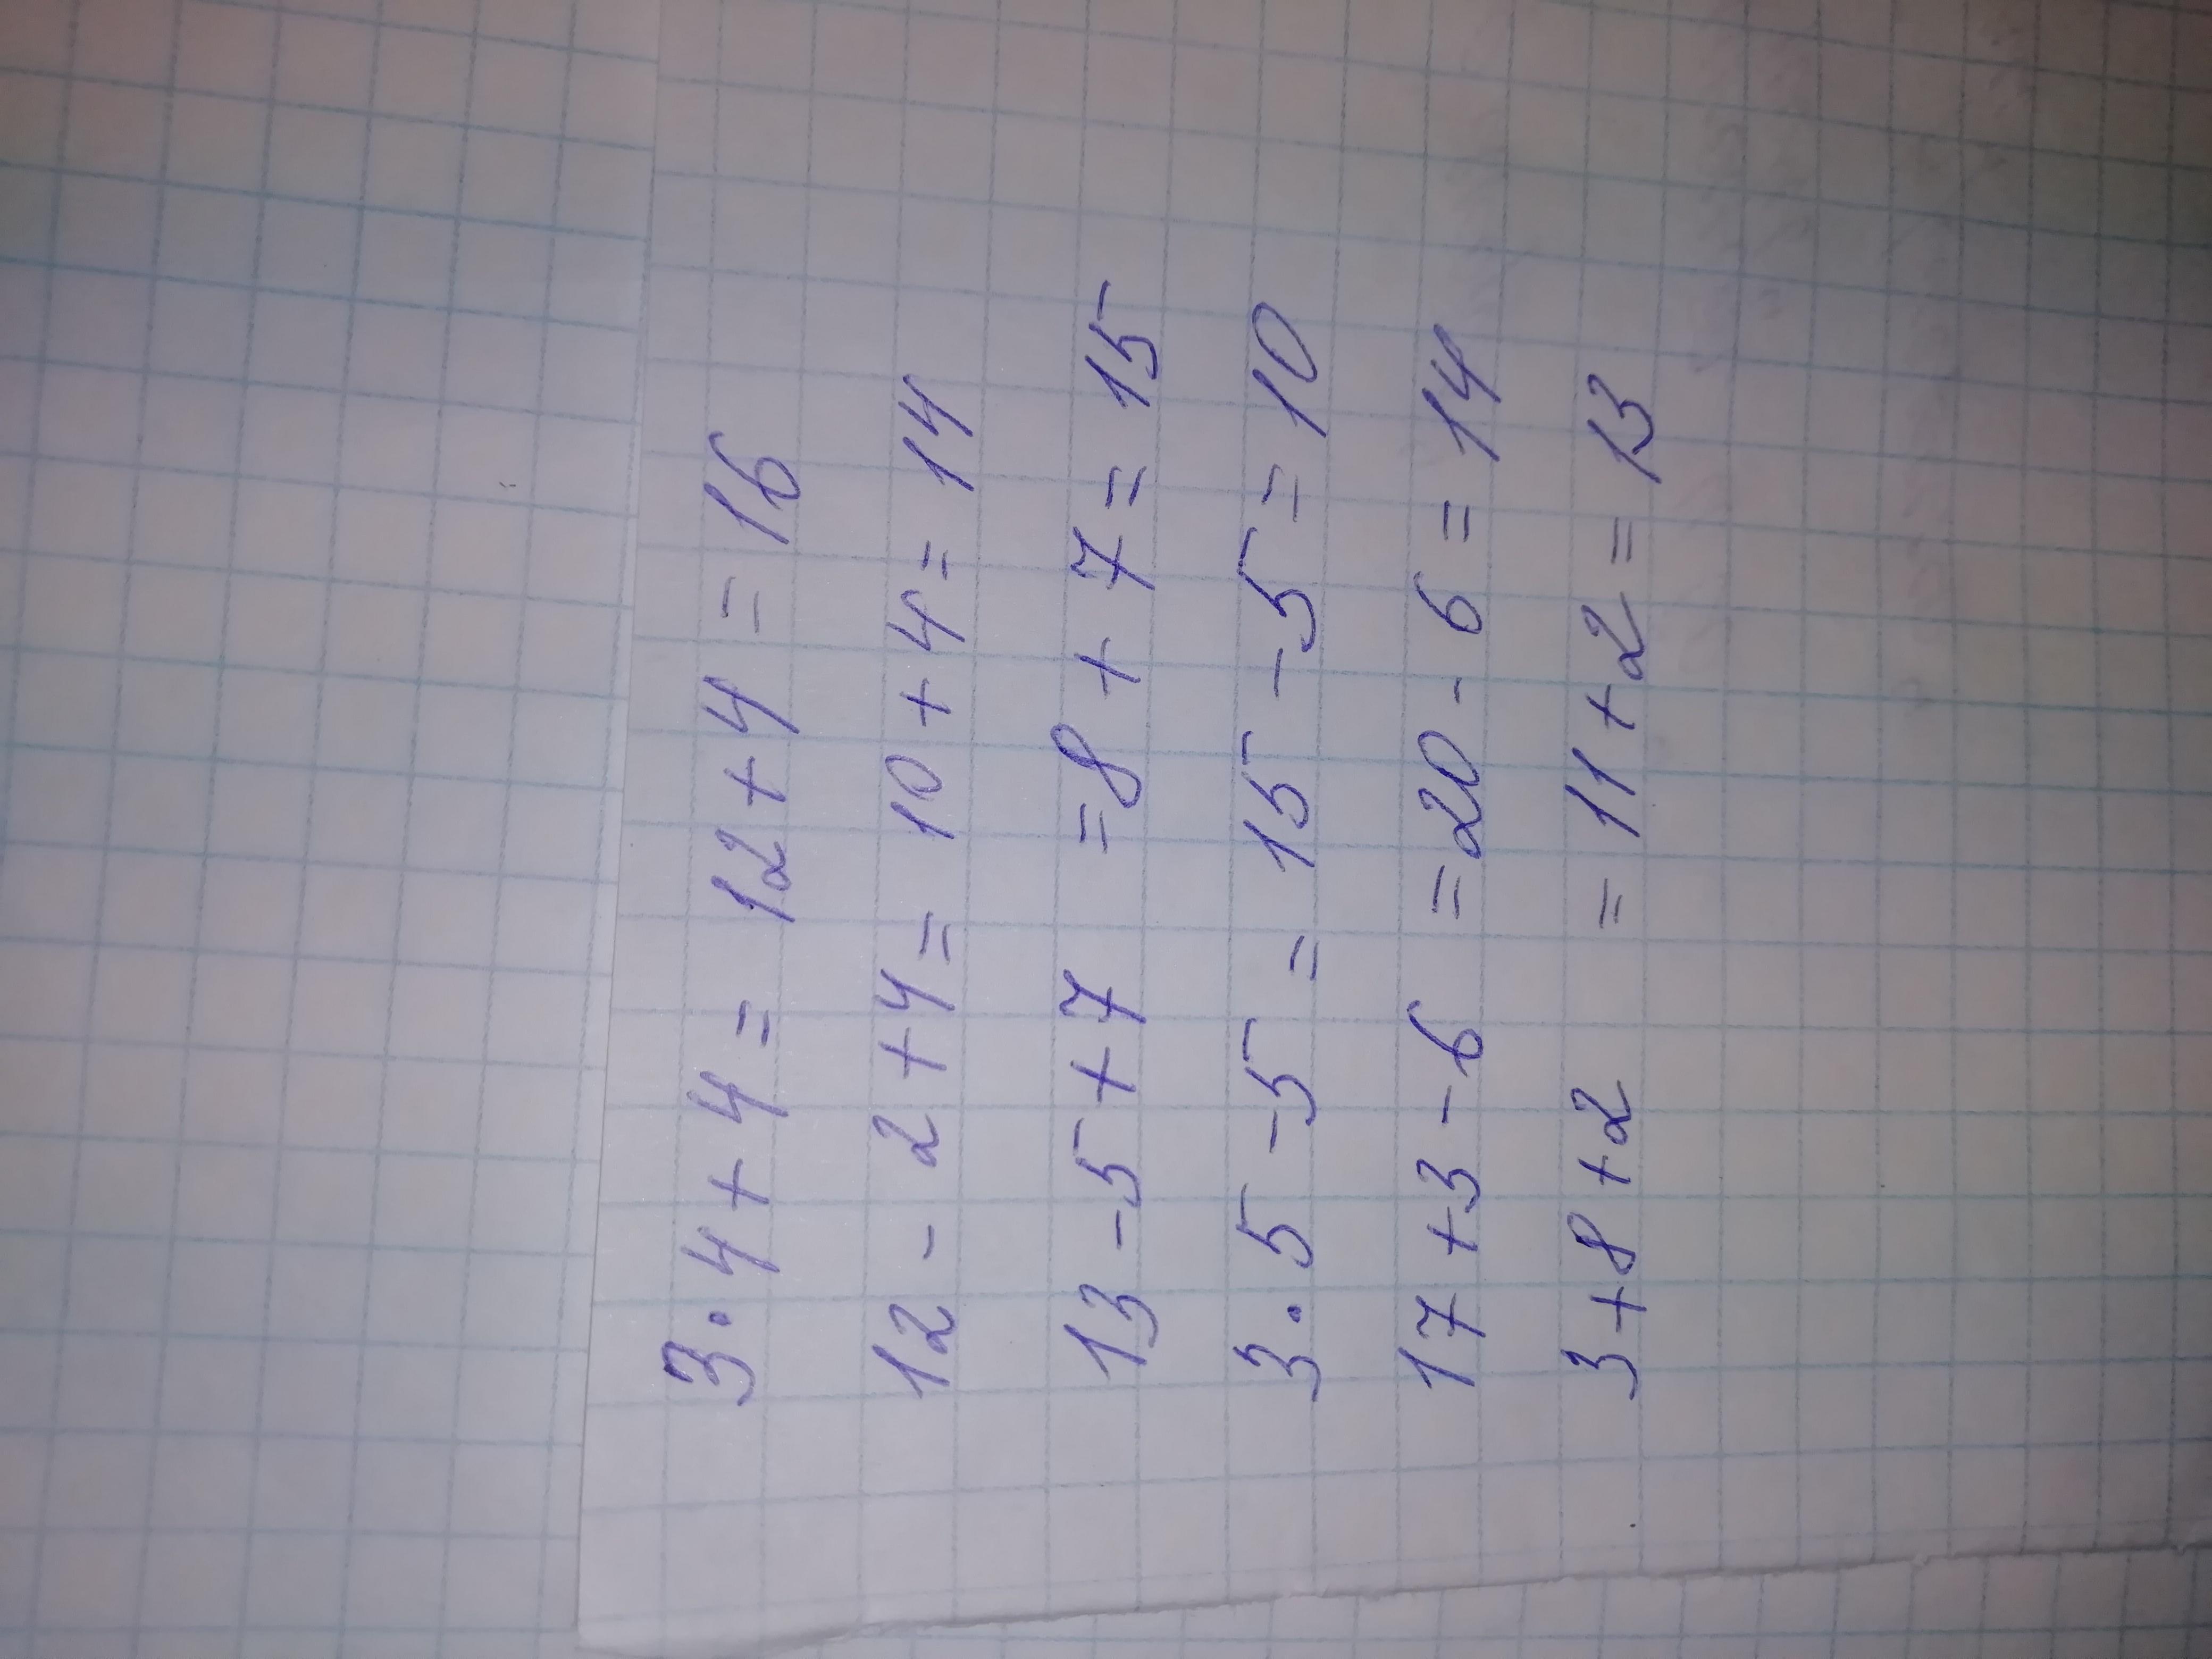 3·4+4= 12+4=16
12-2+4= 10+4=14
13-5+7 =8+7=15
3·5-5= 15-5=10
17+3-6 =20-6=14
3+8+2 =11+2=13